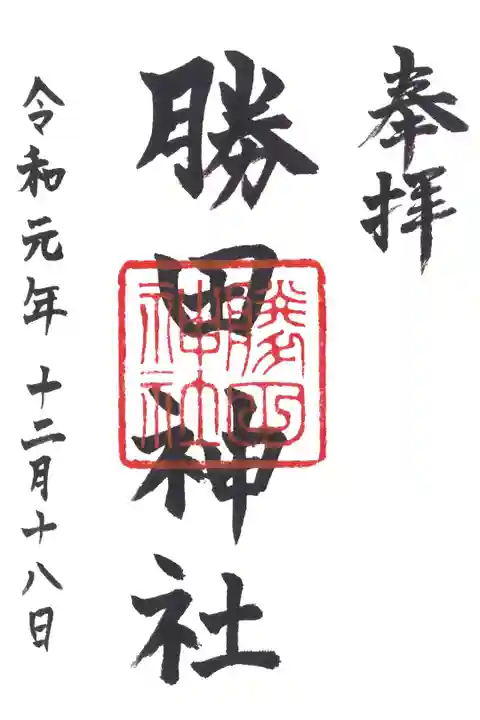 奉拝
勝田神社
勝田
神社
令和元年十二月十八日